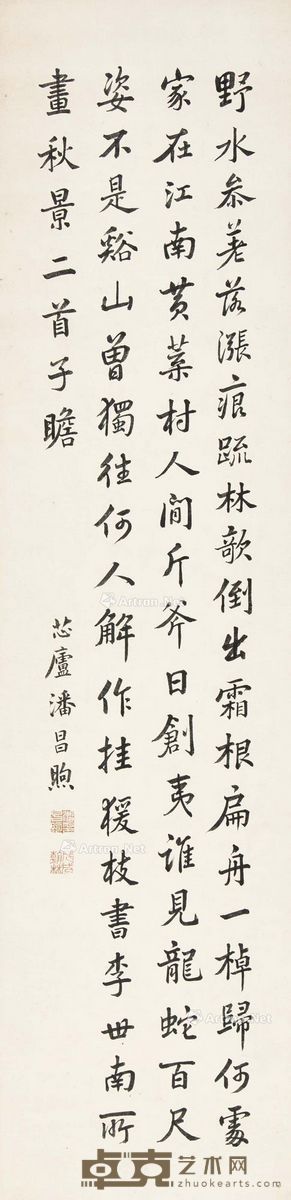 野水參差落漲痕疏林欹倒出霜根扁舟一棹歸何處
家在江南黃葉村人間斤斧日創夷誰見龍蛇百尺
姿不是谿山曾獨往何人解作挂猨枝書李世南所
畫秋景二首子瞻
芯廬潘昌煦
Artron.Net
卓克艺术网
www.zhuokearts.com